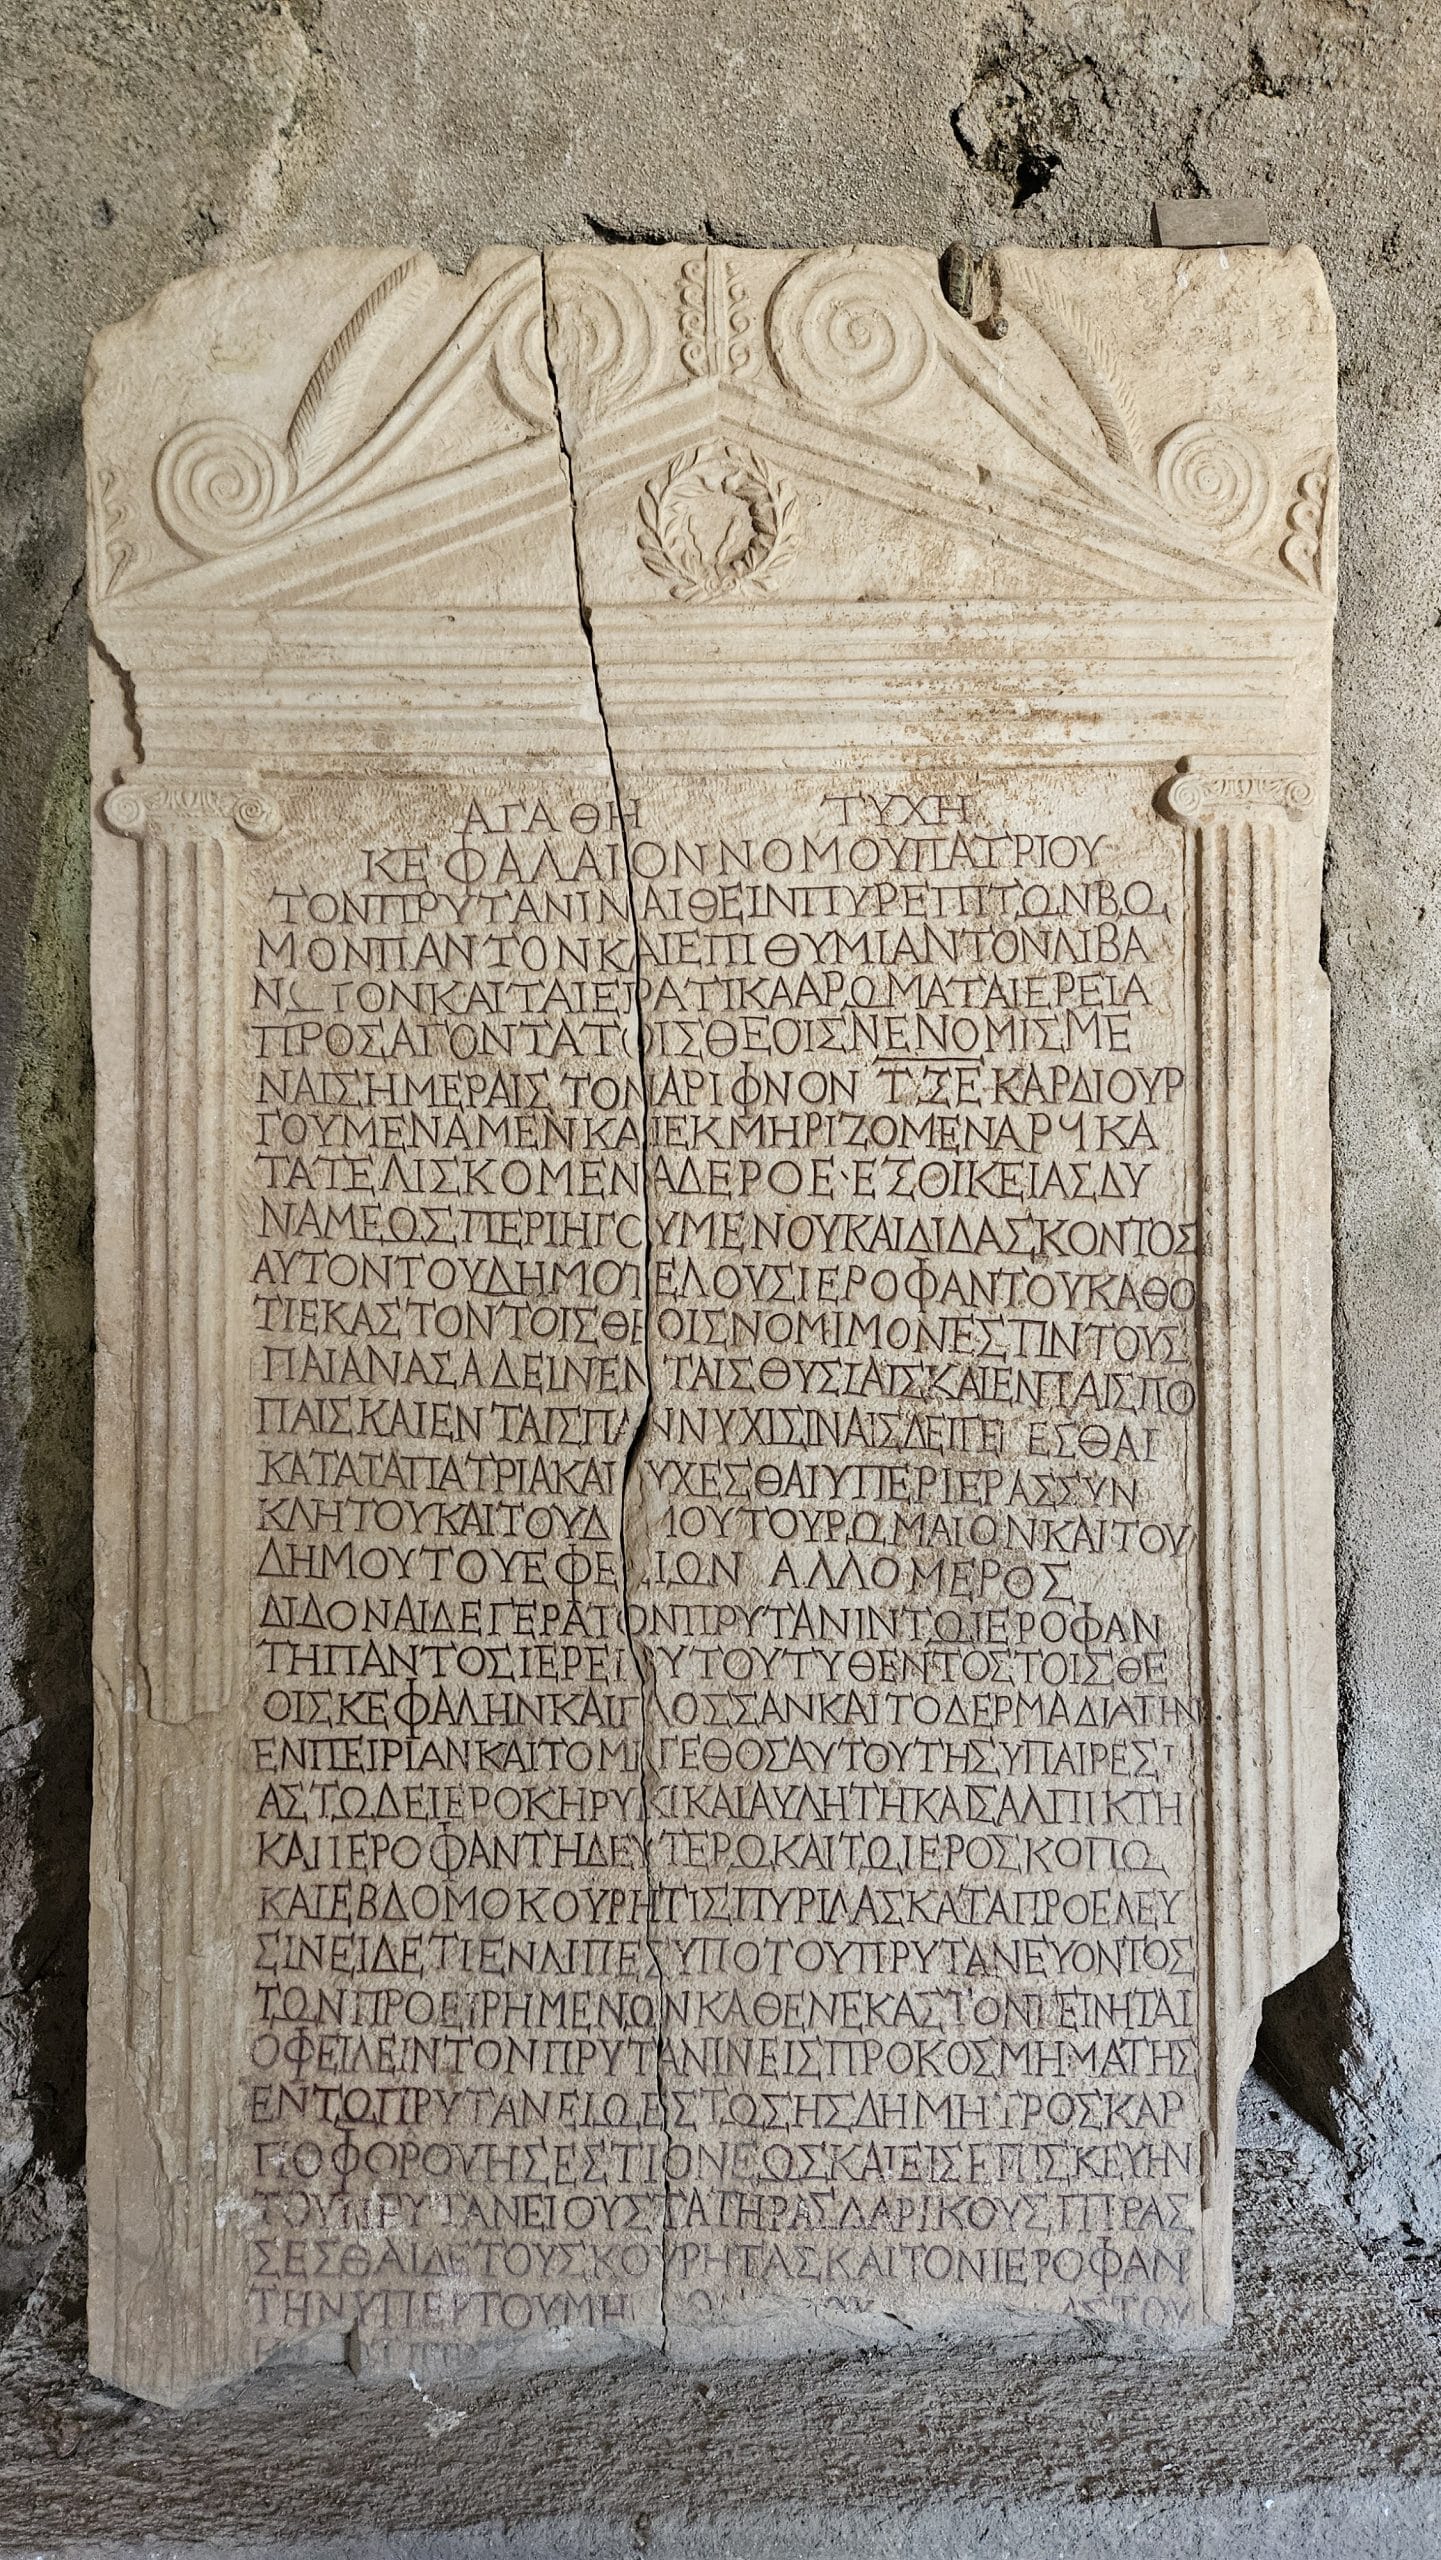 ΑΓΑΘΗ ΤΥΧΗ
ΚΕΦΑΛΑΙΟΝ ΝΟΜΟΥ ΠΑΤΡΙΟΥ
ΤΟΝΠΡΥΤΑΝΙΝΑΙΘΕΙΝΠΥΡΕΠΙΤΩΝΒΩ
ΜΟΝΠΑΝΤΟΝΚΑΙΕΠΙΘΥΜΙΑΝΤΟΝΛΙΒΑ
ΝΩΤΟΝΚΑΙΤΑΙΕΡΑΤΙΚΑΑΡΩΜΑΤΑΙΕΡΕΙΑ
ΠΡΟΣΑΓΟΝΤΑΤΟΙΣΘΕΟΙΣΝΕΝΟΜΙΣΜΕ
ΝΑΙΣΗΜΕΡΑΙΣΤΟΝΑΡΙΦΝΟΝ ΤΞΕ ΚΑΡΔΙΟΥΡ
ΓΟΥΜΕΝΑΜΕΝΚΑΙΕΚΜΗΡΙΖΟΜΕΝΑΡϤΚΑ
ΤΑΤΕΛΙΣΚΟΜΕΝΑΔΕΡΟΕ·ΕΞΟΙΚΕΙΑΣΔΥ
ΝΑΜΕΟΣΠΕΡΙΗΓΟΥΜΕΝΟΥΚΑΙΔΙΔΑΣΚΟΝΤΟΣ
ΑΥΤΟΝΤΟΥΔΗΜΟΤΕΛΟΥΣΙΕΡΟΦΑΝΤΟΥΚΑΘΟ
ΤΙΕΚΑΣΤΟΝΤΟΙΣΘΕΟΙΣΝΟΜΙΜΟΝΕΣΤΙΝΤΟΥΣ
ΠΑΙΑΝΑΣΑΔΕΙΝΕΝΤΑΙΣΘΥΣΙΑΙΣΚΑΙΕΝΤΑΙΣΠΟ
ΠΑΙΣΚΑΙΕΝΤΑΙΣΠΑΝΝΥΧΙΣΙΝΑΙΣΔΕΙΓΕΙΝΕΣΘΑΙ
ΚΑΤΑΤΑΠΑΤΡΙΑΚΑΙ ΥΧΕΣΘΑΙΥΠΕΡΙΕΡΑΣΣΥΝ
ΚΛΗΤΟΥΚΑΙΤΟΥΔ ΜΟΥΤΟΥΡΩΜΑΙΟΝΚΑΙΤΟΥ
ΔΗΜΟΥΤΟΥΕΦΕΣΙΩΝ ΑΛΛΟΜΕΡΟΣ
ΔΙΔΟΝΑΙΔΕΓΕΡΑΤΟΝΠΡΥΤΑΝΙΝΤΩΙΕΡΟΦΑΝ
ΤΗΠΑΝΤΟΣΙΕΡΕΙΟΥΤΟΥΤΥΘΕΝΤΟΣΤΟΙΣΘΕ
ΟΙΣΚΕΦΑΛΗΝΚΑΙΓΛΟΣΣΑΝΚΑΙΤΟΔΕΡΜΑΔΙΑΤΗΝ
ΕΝΠΕΙΡΙΑΝΚΑΙΤΟΜΕΓΕΘΟΣΑΥΤΟΥΤΗΣΥΠΑΙΡΕΣΙ
ΑΣΤΩΔΕΙΕΡΟΚΗΡΥΚΙΚΑΙΑΥΛΗΤΗΚΑΙΣΑΛΠΙΚΤΗ
ΚΑΙΙΕΡΟΦΑΝΤΗΔΕΥΤΕΡΩΚΑΙΤΩΙΕΡΟΣΚΟΠΩ
ΚΑΙΕΒΔΟΜΟΚΟΥΡΗΤΙΣΠΥΡΙΔΑΣΚΑΤΑΠΡΟΕΛΕΥ
ΣΙΝΕΙΔΕΤΙΕΝΛΙΠΕΣΥΠΟΤΟΥΠΡΥΤΑΝΕΥΟΝΤΟΣ
ΤΩΝΠΡΟΕΙΡΗΜΕΝΩΝΚΑΘΕΝΕΚΑΣΤΟΝΓΕΙΝΗΤΑΙ
ΟΦΕΙΛΕΙΝΤΟΝΠΡΥΤΑΝΙΝΕΙΣΠΡΟΚΟΣΜΗΜΑΤΗΣ
ΕΝΤΩΠΡΥΤΑΝΕΙΩΕΣΤΩΣΗΣΔΗΜΗΤΡΟΣΚΑΡ
ΠΟΦΟΡΟΥΗΣΕΣΤΙΟΝΕΩΣΚΑΙΕΙΣΕΠΙΣΚΕΥΗΝ
ΤΟΥΠΡΥΤΑΝΕΙΟΥΣΤΑΤΗΡΑΣΔΑΡΙΚΟΥΣΠΡΑΣ
ΣΕΣΘΑΙΔΕΤΟΥΣΚΟΥΡΗΤΑΣΚΑΙΤΟΝΙΕΡΟΦΑΝ
ΤΗΝΥΠΕΡΤΟΥΜΗ